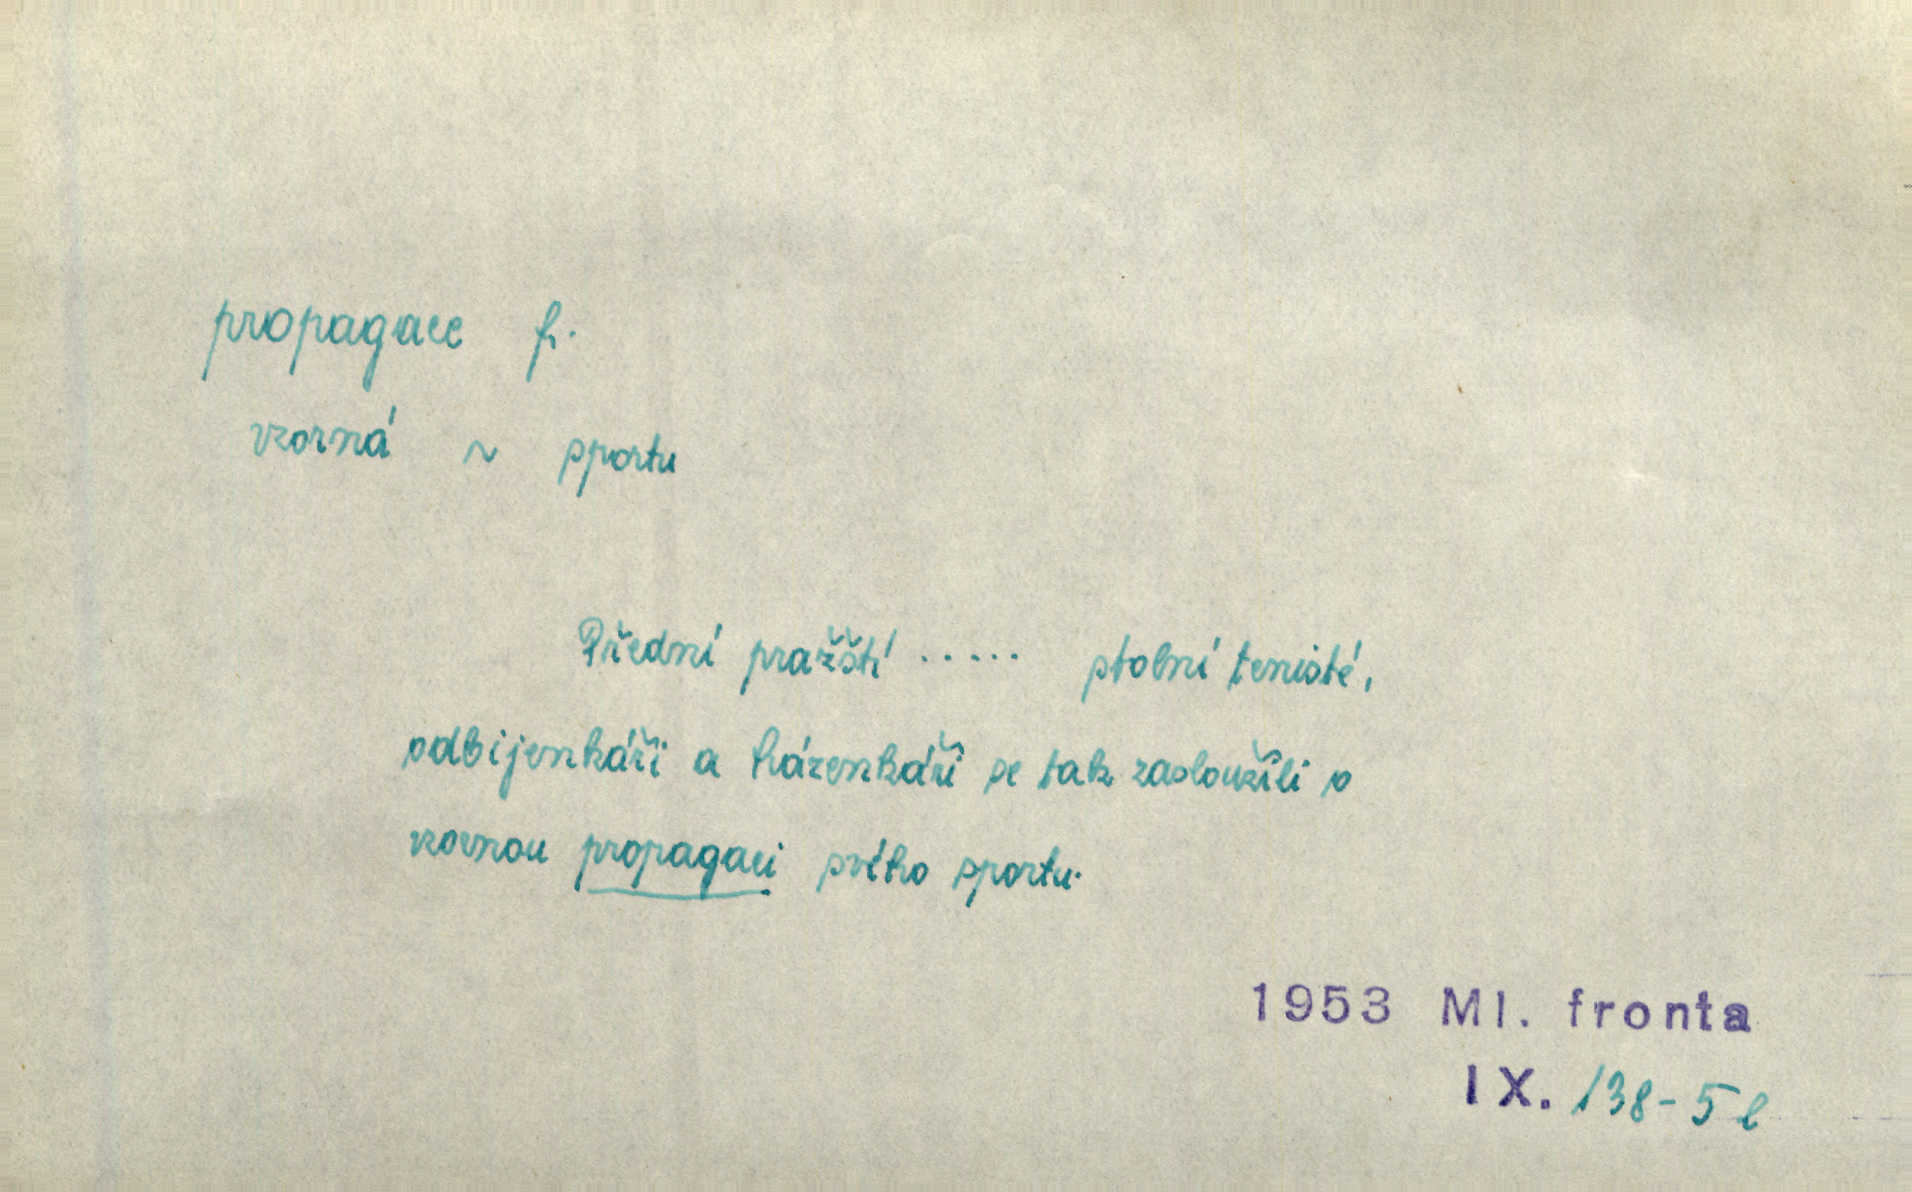 propagace f.
vzorná ~ sportu
Přední pražští ..... stolní tenisté,
odbijenkáři a házenkáři se tak zasloužili o
vzornou propagaci svého sportu.
1953 Ml. fronta
IX. 138-5 l